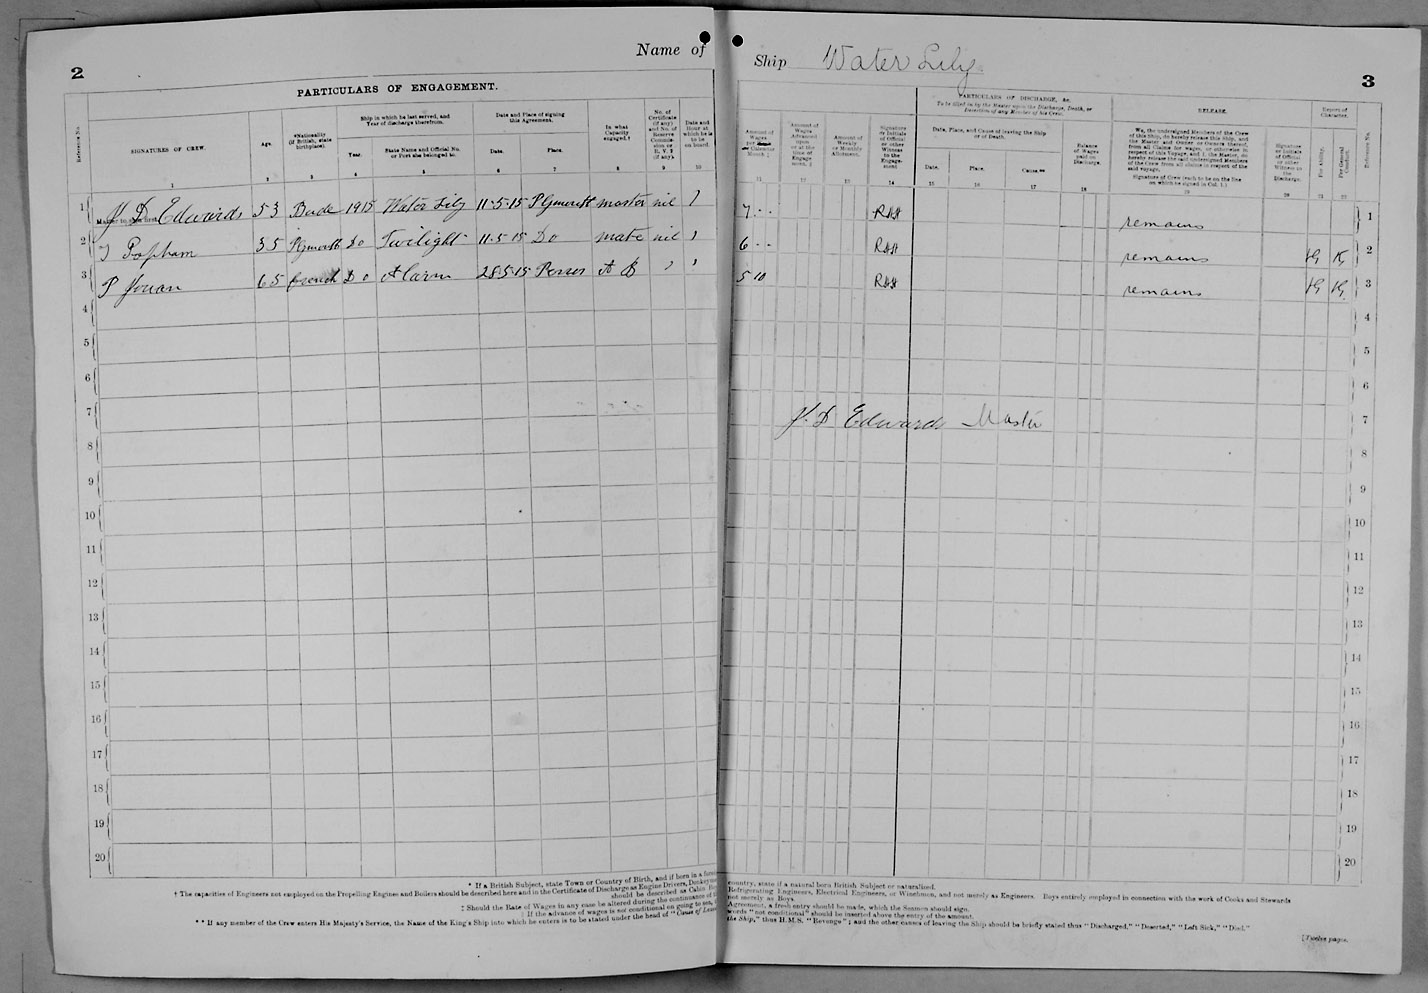 2
Name of
Ship Water Lily
3
PARTICULARS OF ENGAGEMENT.
Reference No.
SIGNATURES OF CREW.
Age.
*Nationality (if British, state birthplace).
Ship in which he last served, and Year of discharge therefrom.
Year.
State Name and Official No. or Port she belonged to.
Date and Place of signing this Agreement.
Date.
Place.
In what Capacity engaged.†
No. of Certificate (if any) and No. of Reserve Commission or R. V 2 (if any).
Date and Hour at which he is to be on board.
1 2 3 4 5 6 7 8 9 10
1 Master to sign first J D Edwards 53 Bude 1915 Water Lily 11-5-15 Plymouth master nil
2 Popham 35 Plymouth Do Twilight 11-5-15 Do mate nil
3 P Jouan 65 french Do Alarm 28-5-15 A B
4
5
6
7
8
9
10
11
12
13
14
15
16
17
18
19
20
PARTICULARS OF DISCHARGE, &c.
To be filled in by the Master upon the Discharge, Death, or Desertion of any Member of his Crew.
RELEASE.
Report of Character.
Amount of Wages per Calendar Month.‡
Amount of Wages Advanced upon or at the time of Engagement.
Amount of Weekly or Monthly Allotment.
Signature or Initials of Official or other Witness to the Engagement
Date, Place, and Cause of leaving the Ship or of Death.
Date.
Place.
Cause.**
Balance of Wages paid on Discharge.
We, the undersigned Members of the Crew of this Ship, do hereby release this Ship, and the Master and Owner or Owners thereof, from all Claims for wages, or otherwise in respect of this Voyage, and I, the Master, do hereby release the said undersigned Members of the Crew from all claims in respect of the said voyage.
Signature of Crew (each to be on the line on which he signed in Col. 1.)
Signature or Initials of Official or other Witness to the Discharge.
For Ability.
For General Conduct.
Reference No.
11 12 13 14 15 16 17 18 19 20 21 22
7 - - remains 1
6 - - remains 2
5 10 remains 3
4
5
6
J. D Edwards Master 7
8
9
10
11
12
13
14
15
16
17
18
19
20
* If a British Subject, state Town or Country of Birth, and if born in a foreign country, state if a natural born British Subject or naturalised.
† The capacities of Engineers not employed on the Propelling Engines and Boilers should be described here and in the Certificate of Discharge as Engine Drivers, Donkeymen Refrigerating Engineers, Electrical Engineers, or Winchmen, and not merely as Engineers. Boys entirely employed in connection with the work of Cooks and Stewards
should be described as Cabin not merely as Boys.
‡ Should the Rate of Wages in any case be altered during the continuance of Agreement, a fresh entry should be made, which the Seamen should sign.
If the advance of wages is not conditional on going to sea, words "not conditional" should be inserted above the entry of the amount.
** If any member of the Crew enters His Majesty's Service, the Name of the King's Ship into which he enters is to be stated under the head of "Cause of the Ship," thus H.M.S. "Revenge"; and the other causes of leaving the Ship should be briefly stated thus "Discharged," "Deserted," "Left Sick," "Died."
[Twelve pages.